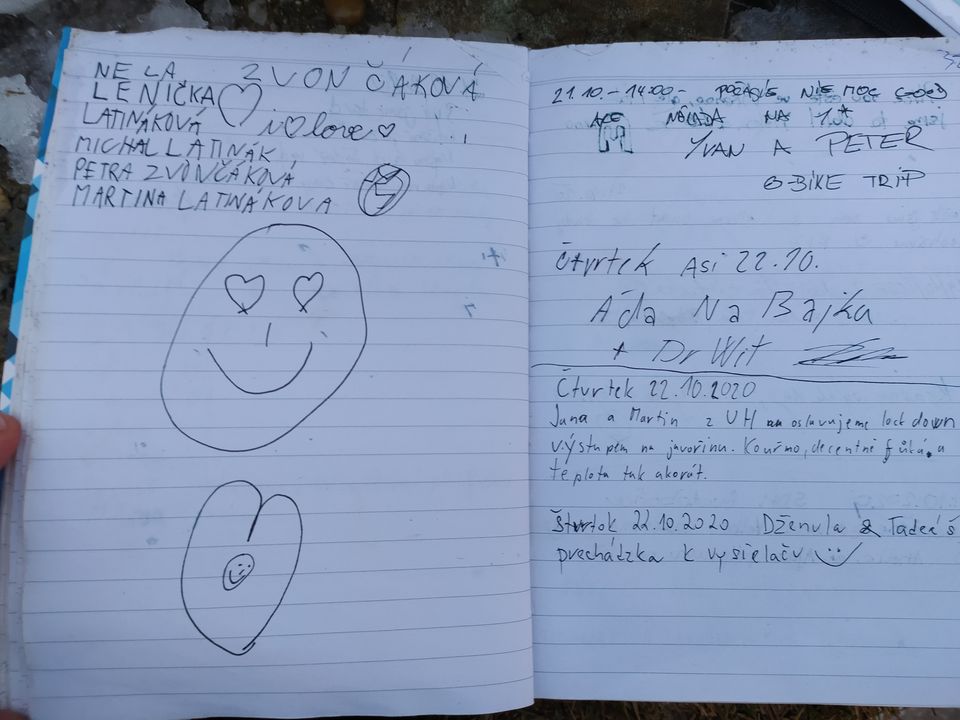 NELA ZVONČÁKOVÁ
LENIČKA
LATINÁKOVÁ
i love
MICHAL LATINÁK
PETRA ZVONČÁKOVÁ
MARTINA LATINÁKOVA
21.10. - 14:00 - POČASIE NIE MOC GOOD
ALE NÁLADA NA 1*
YVAN A PETER
BIKE TRIP
Čtvrtek Asi 22.10.
Áďa Na Bajku
+ Dr Wit
Čtvrtek 22.10.2020
Jana a Martin z UH oslavujeme lock down
výstupem na javořinu. Kouřmo, decentně fúká, a
teplota tak akorát.
Štvrtok 22.10.2020 Dženula & Tadeáš
prechádzka k vysielaču